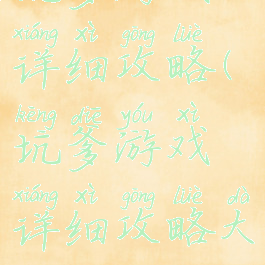 xiáng xì gōng lüè
详细攻略(
kēng diē yóu xì
坑爹游戏
xiáng xì gōng lüè dà
详细攻略大